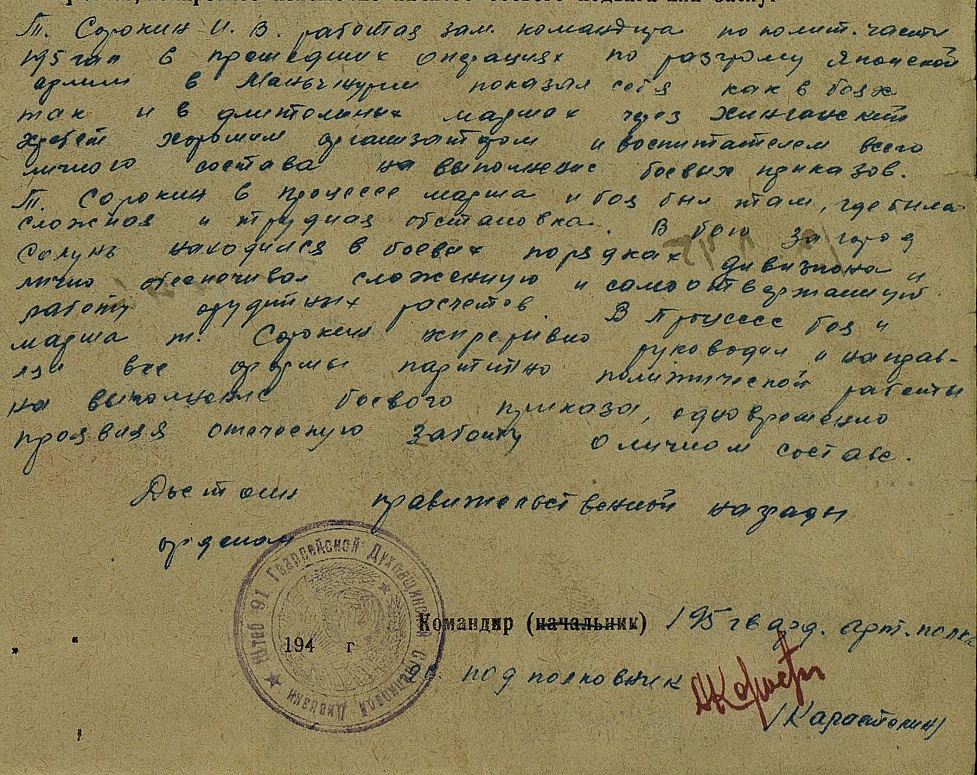 Т. Сорокин И. В. работая зам. командира по полит. части
195 гап в прошедших операциях по разгрому Японской
армии в Маньчжурии показал себя как в боях
так и в длительных маршах через Хинганский
хребет хорошим организатором и воспитателем всего
личного состава на выполнение боевых приказов.
Т. Сорокин в процессе марша и боя был там, где была
сложная и трудная обстановка. В бою за город
Солунь находился в боевых порядках дивизиона
лично обеспечивал сложенную и самоотверженную
работу орудийных расчетов. В процессе боя и
марша т. Сорокин непрерывно руководил и направ-
лял все формы партийно политической работы
на выполнение боевого приказа, одновременно
проявляя отеческую заботу о личном составе.
Достоин правительственной награды
орденом
Штаб 91 Гвардейской Духовщинской Стрелковой Дивизии
Командир (начальник) 195 гвард. арт. полка
194 г
гв. подполковник